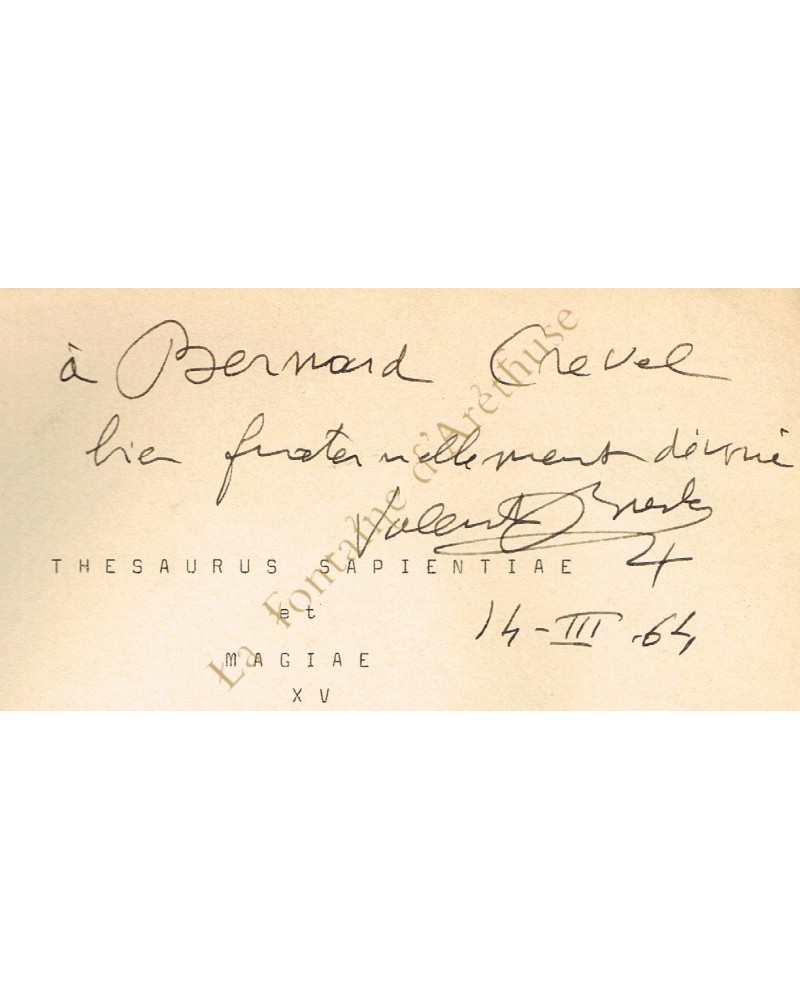 à Bernard Crevel
bien fraternellement dévoué
THESAURUS SAPIENTIAE
et
MAGIAE
XV
14-III.64
La Fontaine d'Aréthuse